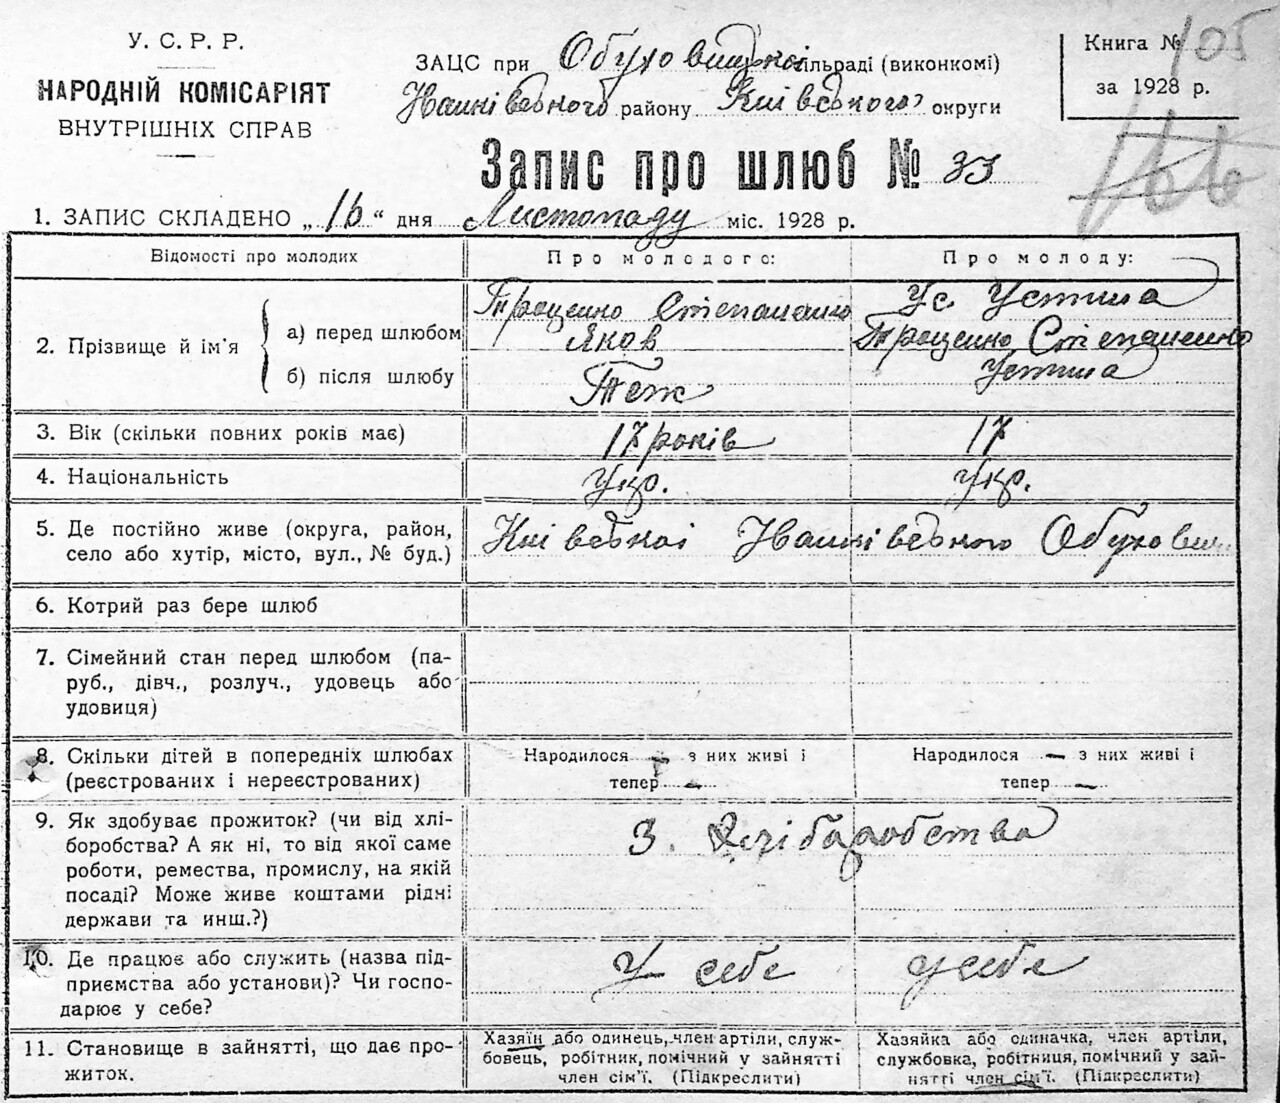 У. С. Р. Р.
НАРОДНІЙ КОМІСАРІЯТ
ВНУТРІШНІХ СПРАВ
ЗАЦС при Обуховицькі сільраді (виконкомі)
району Київського округи
Книга № 105
за 1928 р.
166
Запис про шлюб № 33
1. ЗАПИС СКЛАДЕНО „16“ дня Листопаду міс. 1928 р.
Відомості про молодих
Про молодого:
Про молоду:
2. Прізвище й ім'я
а) перед шлюбом
Троценко Степаненко
Яков
Ус Устина
б) після шлюбу
Теж
Троценко Степаненко
Устина
3. Вік (скільки повних років має)
17 років
17
4. Національність
Укр.
Укр.
5. Де постійно живе (округа, район,
село або хутір, місто, вул., № буд.)
6. Котрий раз бере шлюб
7. Сімейний стан перед шлюбом (па-
руб., дівч., розлуч., удовець або
удовиця)
8. Скільки дітей в попередніх шлюбах
(реєстрованих і нереєстрованих)
Народилося — з них живі і
тепер —
Народилося — з них живі і
тепер —
9. Як здобуває прожиток? (чи від хлі-
боробства? А як ні, то від якої саме
роботи, ремества, промислу, на якій
посаді? Може живе коштами рідні
держави та инш.?)
З хліборобства
10. Де працює або служить (назва під-
приємства або установи)? Чи госпо-
дарює у себе?
У себе
у себе
11. Становище в зайнятті, що дає про-
житок.
Хазяїн або одинець, член артілі, служ-
бовець, робітник, помічний у зайнятті
член сім'ї. (Підкреслити)
Хазяйка або одиначка, член артіли,
службовка, робітниця, помічний у зай-
нятті член сім'ї. (Підкреслити)